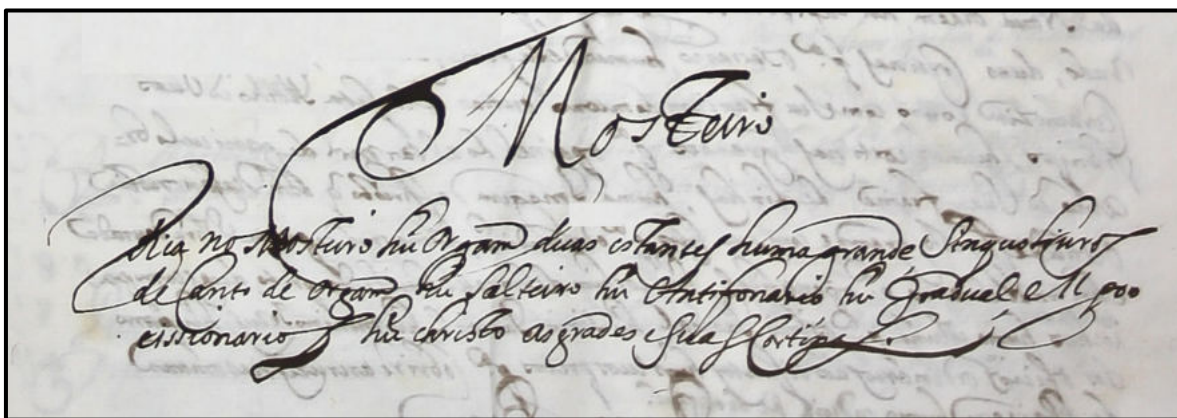 Mosteiro
Auia no Mosteiro hũ Orgam duas estantes huma grande, Sinquo liuros
de Canto de Orgam hũ Salteiro hũ Antifonario hũ Gradual e 11 pro
cissionarios hũ christo as grades e suas Cortinas.